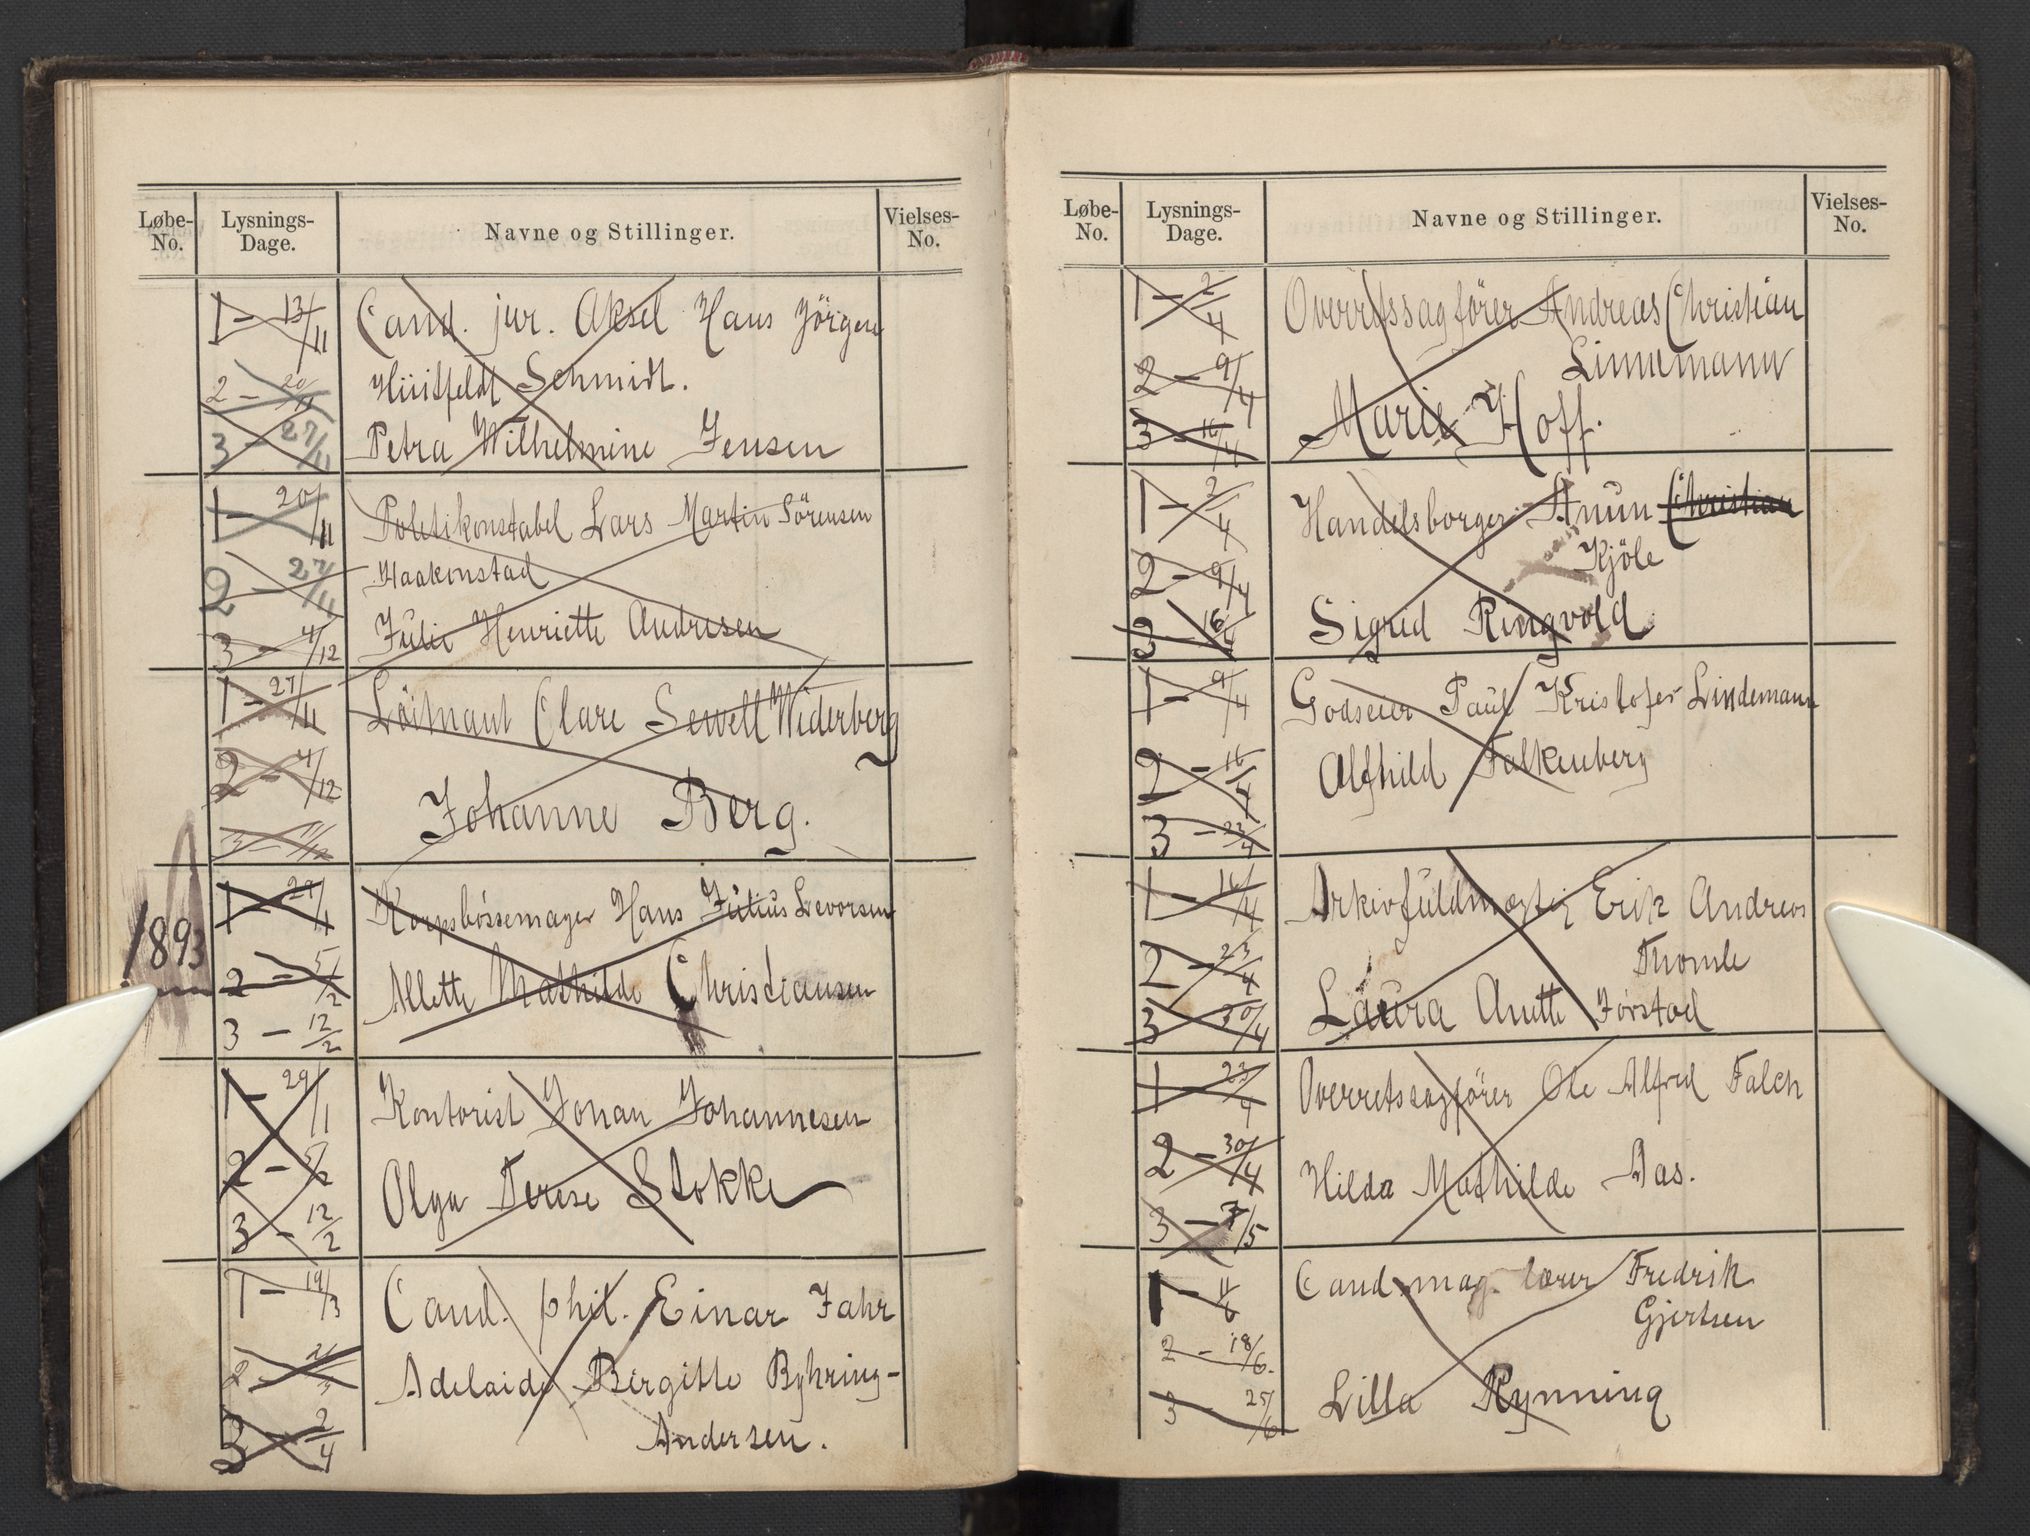 Løbe-No. Lysnings-Dage. Navne og Stillinger. Vielses-No.
1 - 13/11 Cand. jur. Aksel Hans Jörgen
2 - 20/11 Hüitfeldt Schmidt.
3 - 27/11 Petra Wilhelmine Jensen
1 - 20/11 Politikonstabel Lars Martin Sörensen
2 - 27/11 Haakenstad
3 - 4/12 Julie Henriette Andresen
1 - 27/11 Löitnant Clare Sewell Widerberg
2 - 4/12
3 - 11/12 Johanne Berg.
1893
1 - 29/1 Korpsbössemager Hans Julius Levorsen
2 - 5/2 Allette Mathilde Christiansen
3 - 12/2
1 - 29/1 Kontorist Johan Johannesen
2 - 5/2 Olga Terese Stokke
3 - 12/2
1 - 19/3 Cand. phil. Einar Fahr
2 - Adelaide Birgitte Byhring-
3 - 2/4 Andersen.
Løbe-No. Lysnings-Dage. Navne og Stillinger. Vielses-No.
1 - 2/4 Overretssagförer Andreas Christian
Linnemann
2 - 9/4
3 - 16/4 Marie Hoff.
1 - 2/4 Handelsborger Anun Christian
2 - 9/4 Kjöle
3 - 16/4 Sigrid Ringvold
1 - 9/4 Godseier Paul Kristofer Lindemann
2 - 16/4 Alfhild Falkenberg
3 - 23/4
1 - 16/4 Arkivfuldmægtig Erik Andreas
2 - 23/4 Thomle
3 - 30/4 Laura Anette Jörstad
1 - 23/4 Overretssagförer Ole Alfred Falch
2 - 30/4 Hilda Mathilde Aas.
3 - 7/5
1 - 11/6 Cand. mag. lærer Fredrik
Gjertsen
2 - 18/6.
3 - 25/6 Lilla Rynning